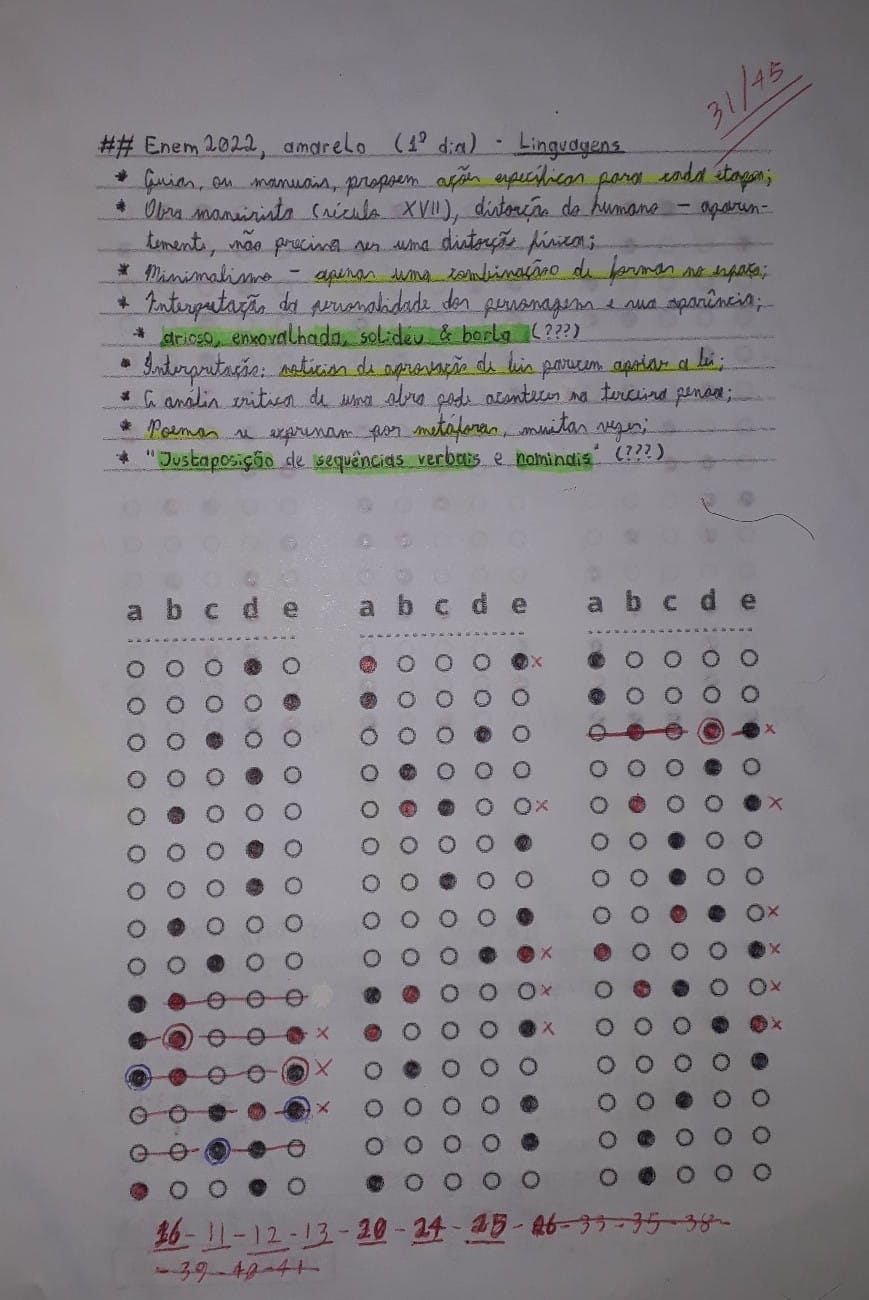 31/45
## Enem 2022, amarelo (1º dia) - Linguagens
* Guias, ou manuais, propoem ações específicas para cada etapa;
* Obra maneirista (século XVII), distorção do humano – aparen-
temente, não precisa ser uma distorção física;
* Minimalismo – apenas uma combinação de formas no espaço;
* Interpretação da personalidade dos personagens e sua aparência;
* arioso, enxovalhada, solidéu & borla (???)
* Interpretação: notícias de aprovação de leis parecem apoiar a lei;
* A análise crítica de uma obra pode acontecer na terceira pessoa;
* Poemas se expressam por metáforas, muitas vezes;
* "Justaposição de sequências verbais e nominais" (???)
a b c d e a b c d e a b c d e
x
x
x x
x
x x
x x
x x x
x
x
16 - 11 - 12 - 13 - 20 - 24 - 25 - 26 - 33 - 35 - 38 -
- 39 - 40 - 41